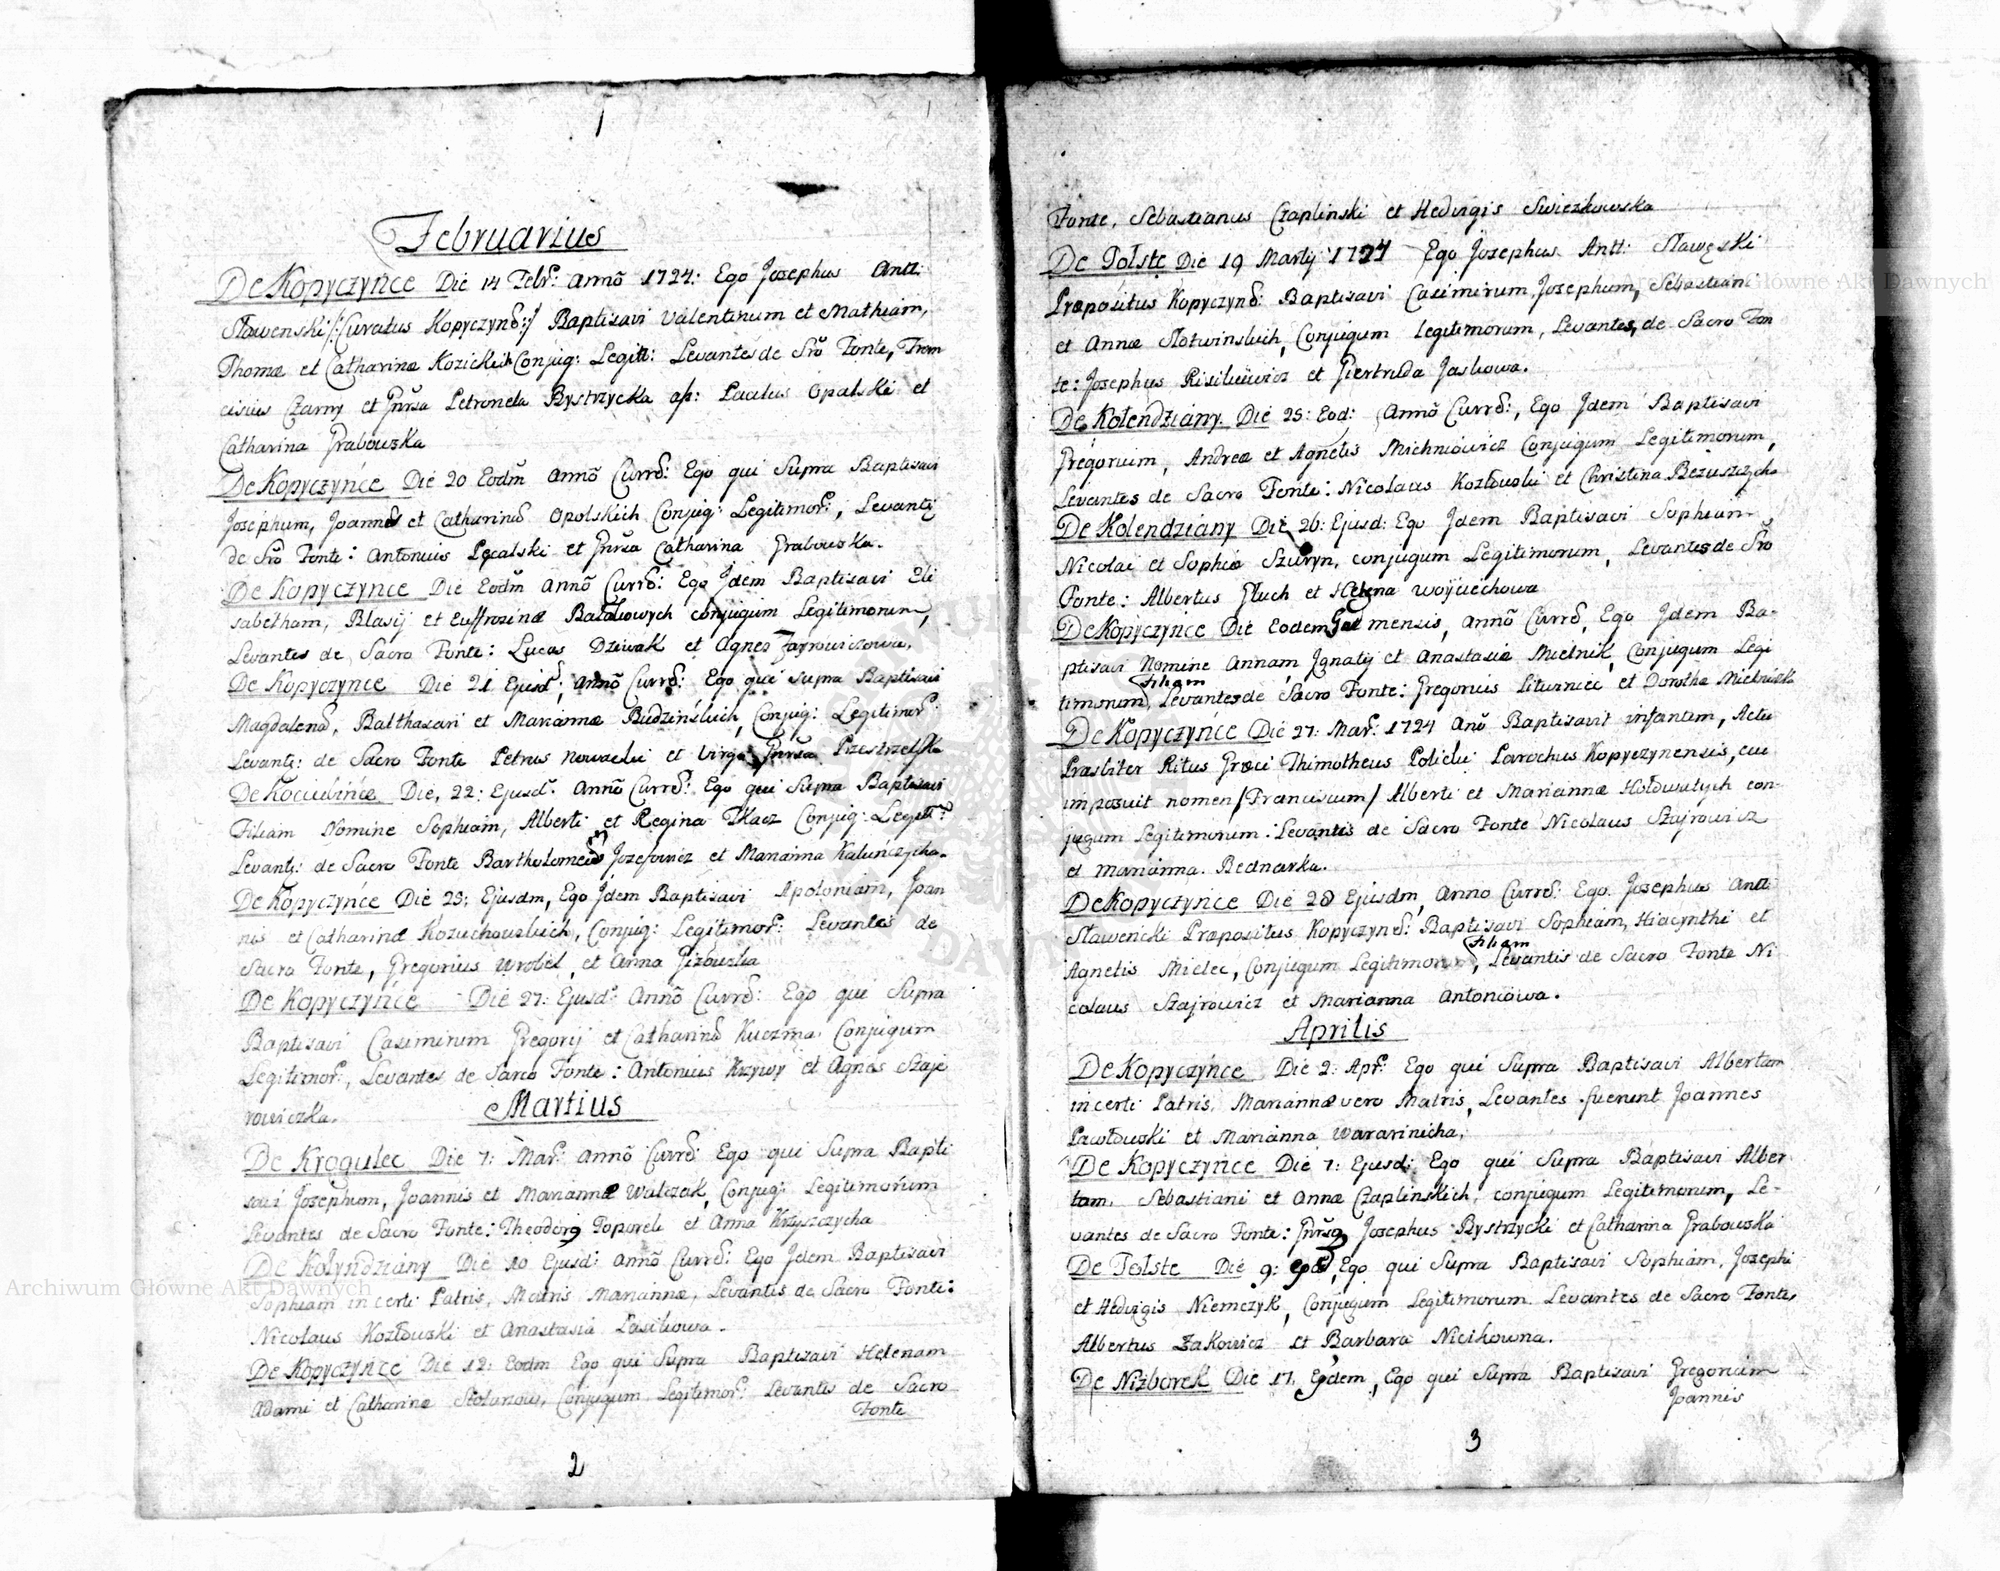 Februarius
De Kopyczyńce Die 14 Febr: Annõ 1724: Ego Josephus Antt:
Sławenski /: Curatus Kopyczynẽ:/ Baptisavi Valentinum et Mathiam,
Thomæ et Catharinæ Kozickich Conjug: Legitt: Levantes de Srõ Fonte, Fran
ciscus Czarny et Gnrsa Petronela Bystrzycka ap: Paulus Opalski et
Catharina Grabowska
De Kopyczyńce Die 20 Eodm Annõ Currẽ: Ego qui Supra Baptisavi
Josephum, Joannis et Catharinæ Opolskich Conjug: Legitimor:, Levantẽ
de Srõ Fonte: Antonius Pęcalski et Gnrsa Catharina Grabowska.
De Kopyczynce Die Eodm Annõ Currẽ: Ego Jdem Baptisavi Eli
sabetham, Blasij et Euffrozinæ Batałiowych conjugum Legitimorum,
Levantes de Sacro Fonte: Lucas Dziwak et Agnes Zayrowiczowa.
De Kopyczynce Die 21 Ejusd: Annõ Currẽ: Ego qui Supra Baptisavi
Magdalenã, Balthasari et Mariannæ Budzińskich, Conjug: Legitimor:
Levantẽ: de Sacro Fonte Petrus Nowacki et Virgo Gnrsa Przestrzelska
De Kociubińce Die, 22: Ejusd: Annõ Currẽ: Ego qui Supra Baptisavi
Filiam Nomine Sophiam, Alberti et Regina Tkacz Conjug: Legitt:
Levantẽ: de Sacro Fonte Bartholomeus Jozefowicz et Marianna Kaluńczycha.
De Kopyczyńce Die 23: Ejusdm, Ego Jdem Baptisavi Apoloniam, Joan
nis et Catharinæ Kozuchowskich, Conjug: Legitimor: Levantes de
Sacro Fonte, Gregorius Wrobel, et Anna Gizowska
De Kopyczyńce Die 27: Ejusd: Annõ Currẽ: Ego qui Supra
Baptisavi Casimirum Gregorij et Catharinæ Kuczma Conjugum
Legitimor:, Levantes de Sacro Fonte: Antonius Krzywy et Agnes Szaje
rowiczka.
Martius
De Krogulec Die 7: Mar: Annõ Currẽ: Ego qui Supra Bapti
savi Josephum, Joannis et Mariannæ Walczak, Conjug: Legitimorum
Levantes de Sacro Fonte: Theodorg Toporek et Anna Krzyszczycha
De Kolyndziány Die 10 Ejusd: Annõ Currẽ: Ego Jdem Baptisavi
Sophiam incerti Patris, Matris Mariannæ, Levantes de Sacro Fonte:
Nicolaus Kozłowski et Anastasia Lasikowa.
De Kopyczyńce Die 12: Eodm Ego qui Supra Baptisavi Helenam
Adami et Catharinæ Stolarow, Conjugum Legitimor: Levantes de Sacro
Fonte
2
Fonte, Sebastianus Czaplinski et Hedvigis Swiezkowska
De Tolste Die 19 Martij 1724 Ego Josephus Antt: Sławęski
Præpositus Kopyczynẽ: Baptisavi Casimirum Josephum, Sebastiani
et Annæ Slotwinskich, Conjugum legitimorum, Levantes, de Sacro Fon
te: Josephus Risikiewicz et Giertruda Jaskowa.
De Kolendziány. Die 25: Eod: Annõ Currẽ:, Ego Jdem Baptisavi
Gregorium, Andreæ et Agnetis Michniowicz Conjugum Legitimorum,
Levantes de Sacro Fonte: Nicolaus Kozłowski et Christina Bezuszczycha
De Kolendziány Die 26: Ejusd: Ego Jdem Baptisavi Sophiam
Nicolai et Sophiæ Szuryn, conjugum Legitimorum, Levantes de Srõ
Fonte: Albertus Gluch et Helena Woyciechowa
De Kopyczynce Die eodem mensis, Annõ Currẽ, Ego Jdem Ba-
ptisavi Nomine Annam, Jgnatij et Anastasiæ Mielnik, Conjugum Legi
Filiam
timorum, Levantes de Sacro Fonte: Gregorius Liturnicc et Dorotha Mielniczka
De Kopyczyńce Die 27: Mar: 1724 Anõ Baptisavit infantem, Actu
Præsbiter Ritus Græci Thimotheus Policki Parochus Kopyczynensis, cui
imposuit nomen /Franciscum/ Alberti et Mariannæ Holdowatych con-
jugum Legitimorum: Levantes de Sacro Fonte Nicolaus Szajrowicz
et Marianna. Bednarka.
De Kopyczyńce Die 28 Ejusdm, Anno Currẽ: Ego. Josephus Antt:
Sławencki Præpositus Kopyczynẽ: Baptisavi Sophiam, Hiacynthi et
Filiam
Agnetis Mielec, Conjugum Legitimorum, Levantes de Sacro Fonte Ni
colaus Szajrowicz et Marianna Antoniowa.
Aprilis
De Kopyczyńce Die 2: Apr: Ego qui Supra Baptisavi Albertum
incerti Patris, Mariannæ vero Matris, Levantes fuerunt Joannes
Pawłowski et Marianna Wararinicha,
De Kopyczynce Die 7: Ejusd: Ego qui Supra Baptisavi Alber
tum, Sebastiani et Annæ Czaplinskich, conjugum Legitimorum, Le-
vantes de Sacro Fonte: Gnrsg Josephus Bystrzycki et Catharina Grabowska
De Tolste Die 9: Ego qui Supra Baptisavi Sophiam, Josephi
et Hedvigis Niemczyk, Conjugum Legitimorum Levantes de Sacro Fonte,
Albertus Zakowicz et Barbara Nicikowna.
De Niżborek Die 17. Ejdem, Ego qui Supra Baptisavi Gregorium
Joannis
3
Archiwum Główne Akt Dawnych
Archiwum Główne Akt Dawnych